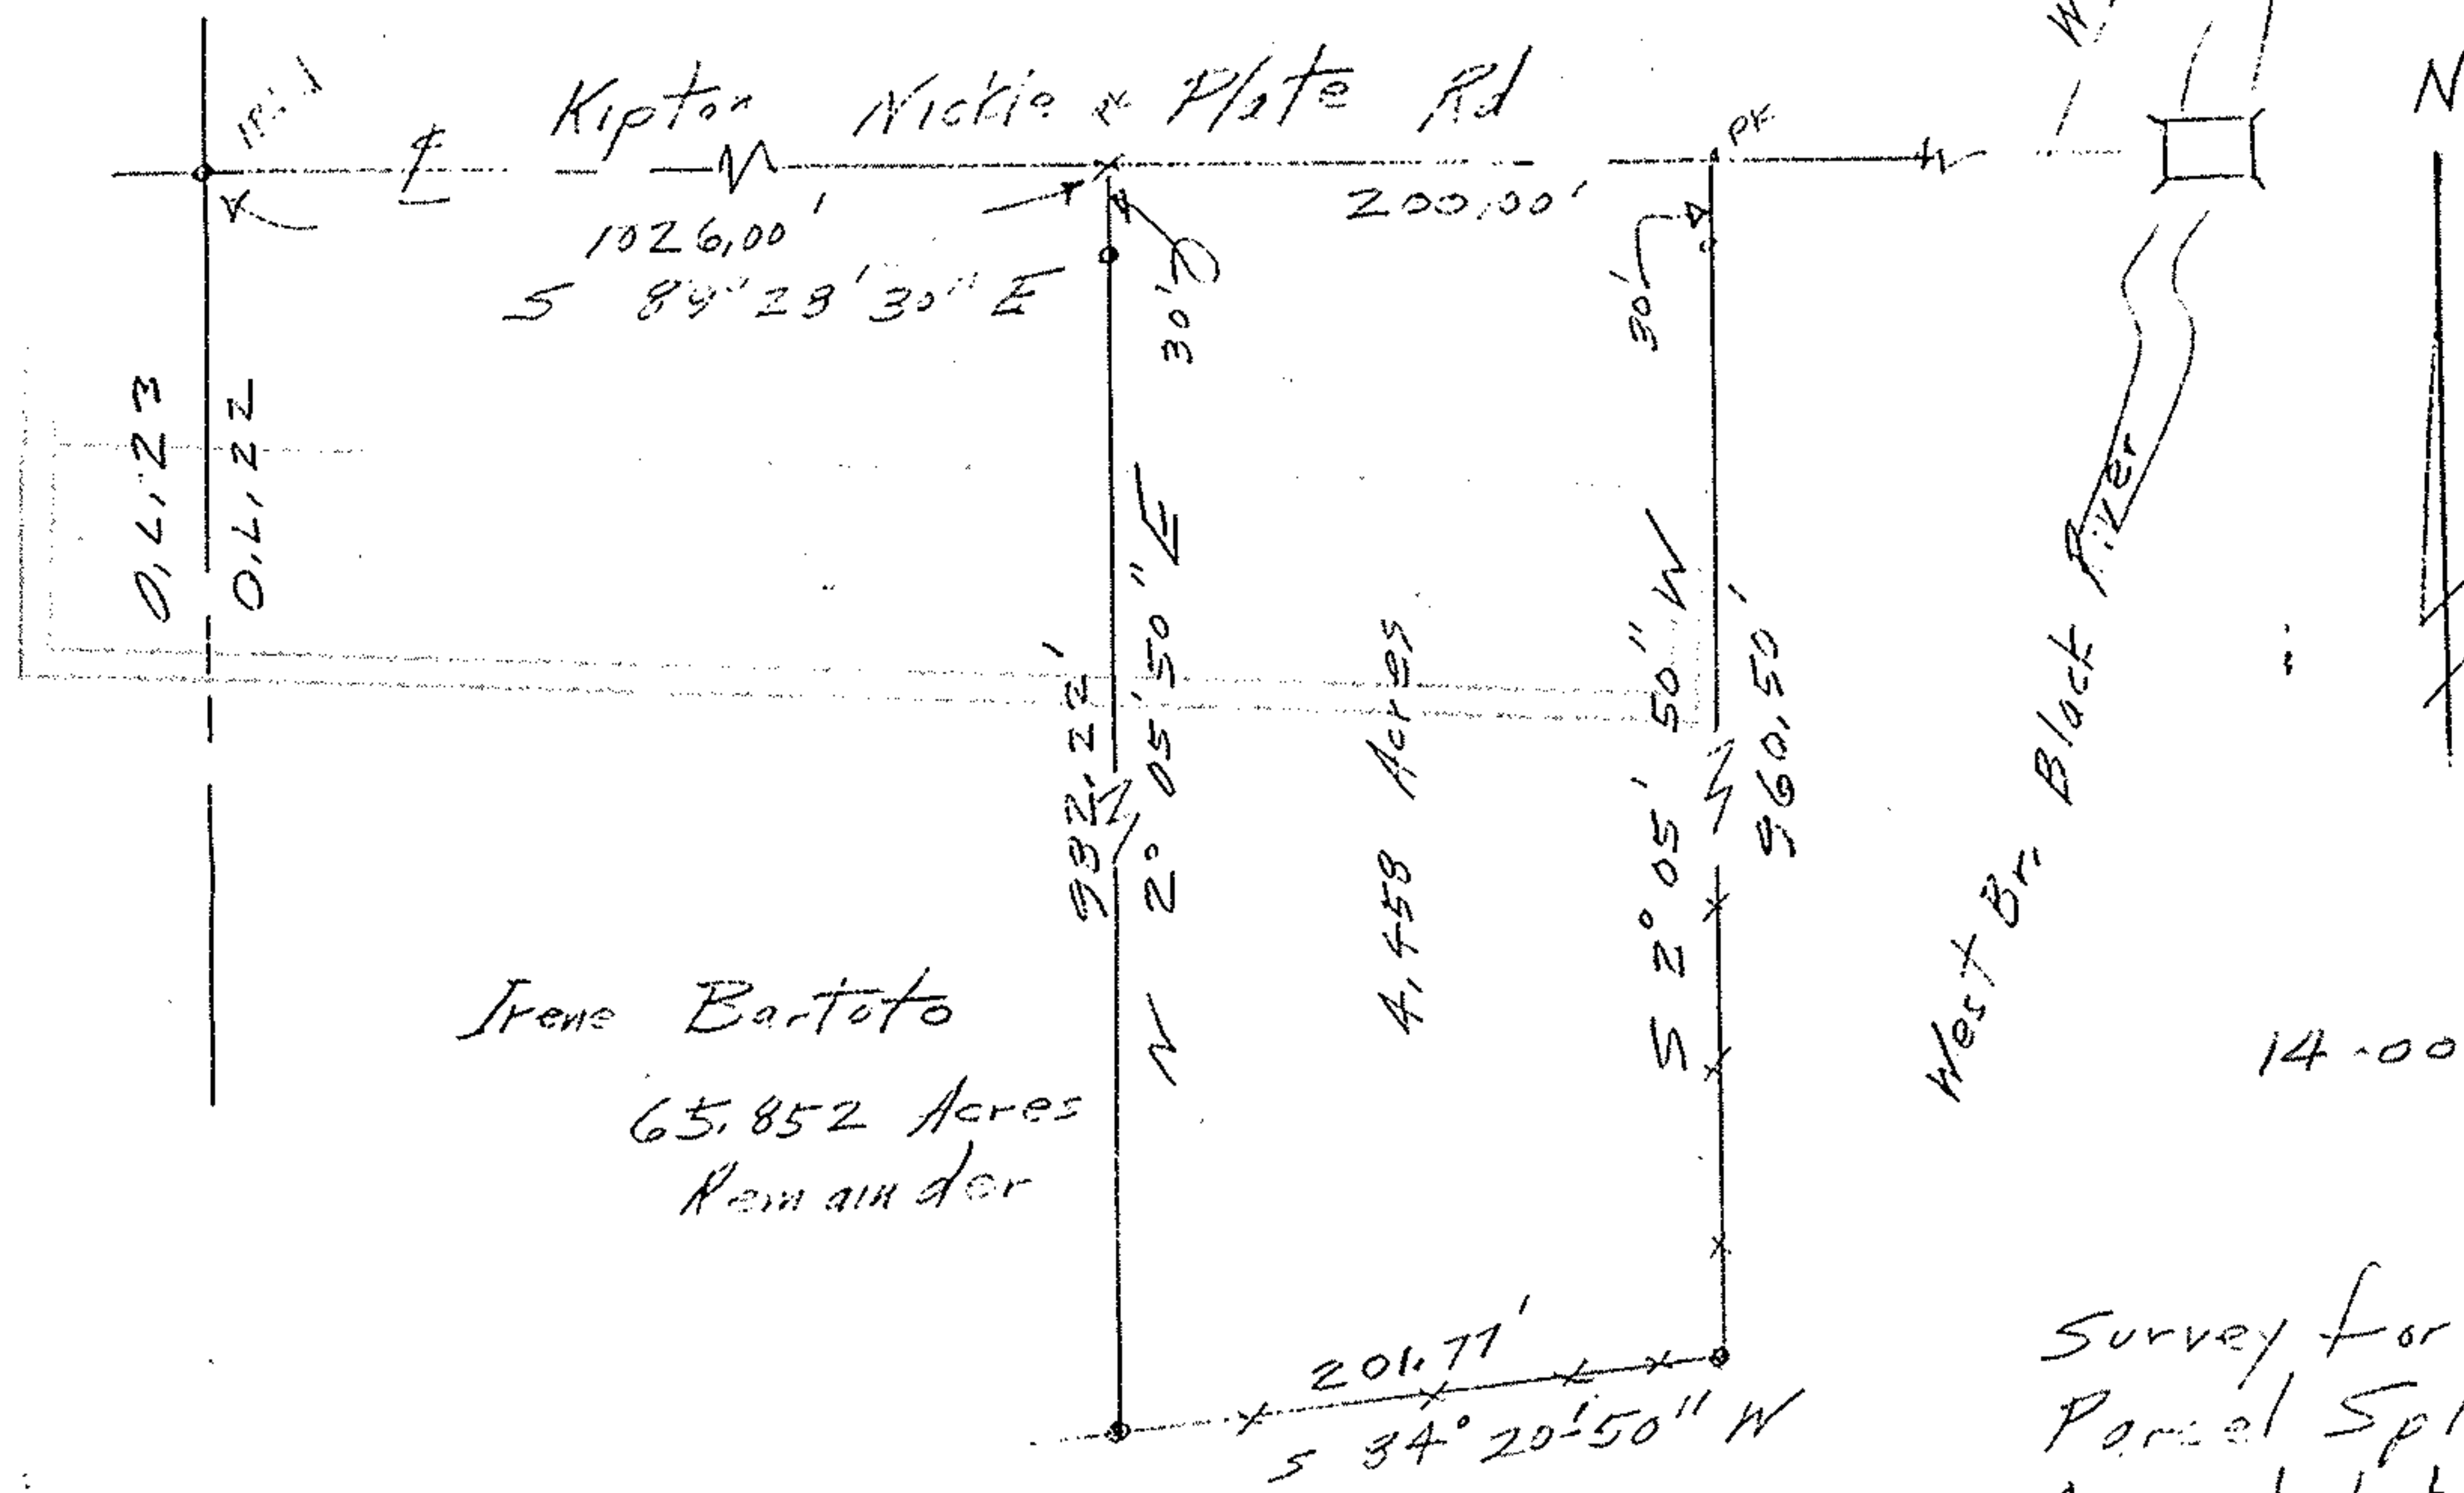 Kipton Nickle Plate Rd
N
1026.00'
200.00'
S 89° 28' 30" E
30'
30'
O.L. 23
O.L. 22
982.22'
N 2° 05' 50" E
4.458 Acres
S 2° 05' 50" W
960.50'
West Br. Black River
Irene Bartoto
65.852 Acres
Remainder
14-00
201.77'
S 84° 20' 50" W
Survey for
Parcel Spl